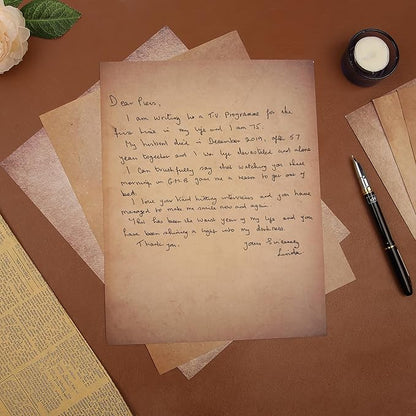 Dear Piers,
I am writing to a T.V. Programme for the
first time in my life and I am 75.
My husband died in December 2019, after 57
years together and I was left devastated and alone
I can truthfully say that watching you these
mornings on G.M.B gave me a reason to get out of
bed.
I love your hard hitting interviews and you have
managed to make me smile now and again.
This has been the worst year of my life and you
have been shining a light into my darkness.
Thank you,
Yours Sincerely
Linda